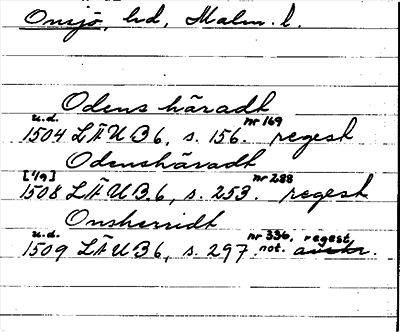 Onsjö, hd, Malm. l.
Odens häradt
u.d. nr 169
1504 LÄUB 6, s. 156. regest
Odenshäradt
[1/9] nr 288
1508 LÄUB.6, s. 253. regest
Onsherridt
u.d. nr 336, regest,
1509 LÄUB6, s. 297. not. avskr.